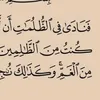 فَنَادَىٰ فِي ٱلظُّلُمَٰتِ أَن
كُنتُ مِنَ ٱلظَّٰلِمِينَ
مِنَ ٱلْغَمِّ ۚ وَكَذَٰلِكَ